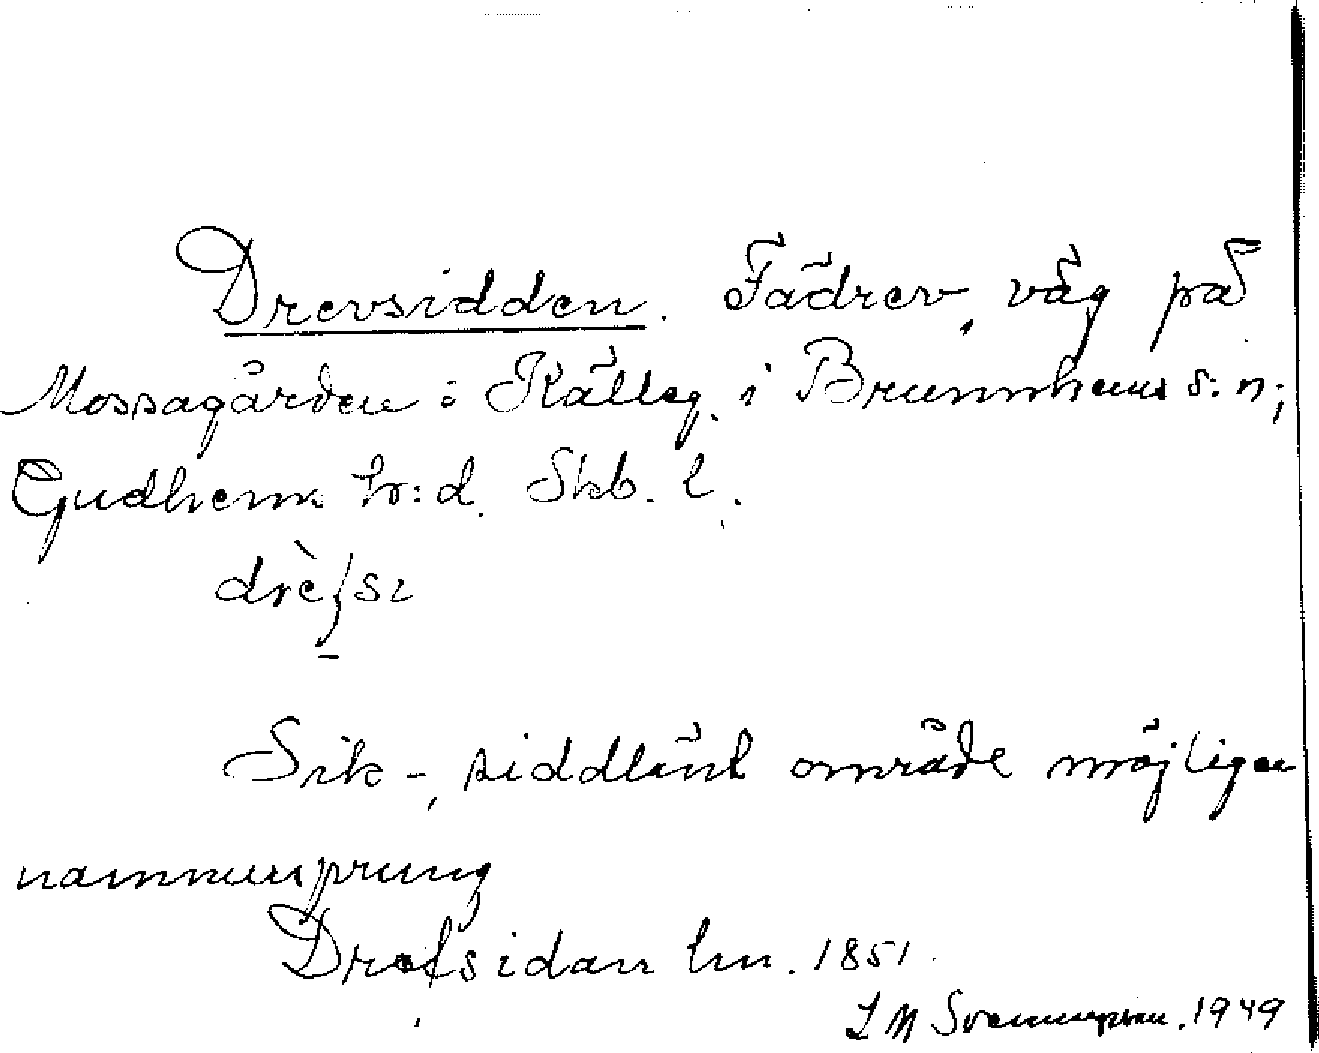 Drevsidden. Fädrev, väg på
Mossagården i Källeg. i Brunnhems s:n;
Gudhems hr:d. Skb. l.
drè
Sik-, siddlänt område möjligen
namnursprung
Drefsidan lm. 1851.
L M Svennungsson. 1949